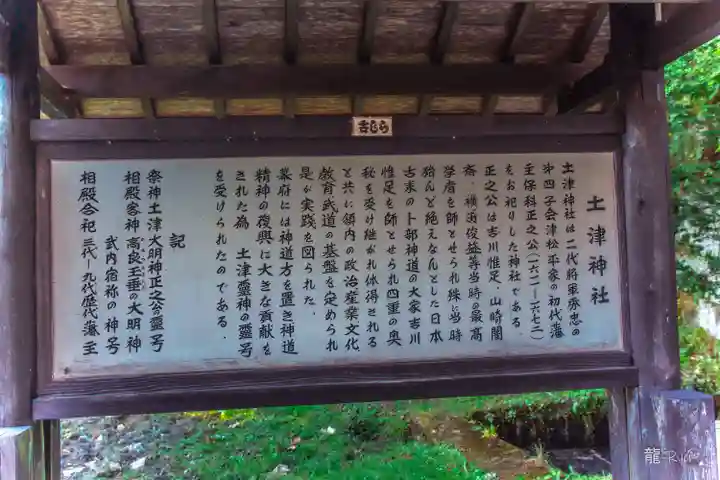 土津神社
土津神社は二代将軍秀忠の
第四子会津松平家の初代藩
主保科正之公(一六一一―一六七二)
をお祀りした神社である
正之公は吉川惟足、山崎闇
斎、横渡俊益等当時の最高
学者を師とせられ殊に当時
殆んど絶えなんとした日本
古来の卜部神道の大家吉川
惟足を師とせられ四重の奥
秘を受け継がれ体得される
と共に領内の政治産業文化
教育武道の基盤を定められ
是が実践を図られた.
幕府には神道方を置き神道
精神の復興に大きな貢献を
された為 土津霊神の霊号
を受けられたのである.
記
祭神土津大明神正之公の霊号
相殿客神 高良玉垂の大明神
武内宿祢の神号
相殿合祀 三代―九代歴代藩主
龍